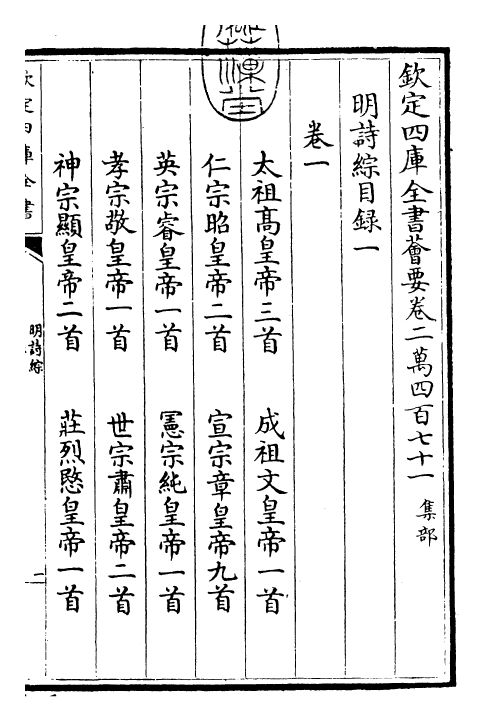 欽定四庫全書薈要卷二萬四百七十一 集部
明詩綜目録一
卷一
太祖髙皇帝三首 成祖文皇帝一首
仁宗昭皇帝二首 宣宗章皇帝九首
英宗睿皇帝一首 憲宗純皇帝一首
孝宗敬皇帝一首 世宗肅皇帝二首
神宗顯皇帝二首 莊烈愍皇帝一首
欽定四庫全書
明詩綜